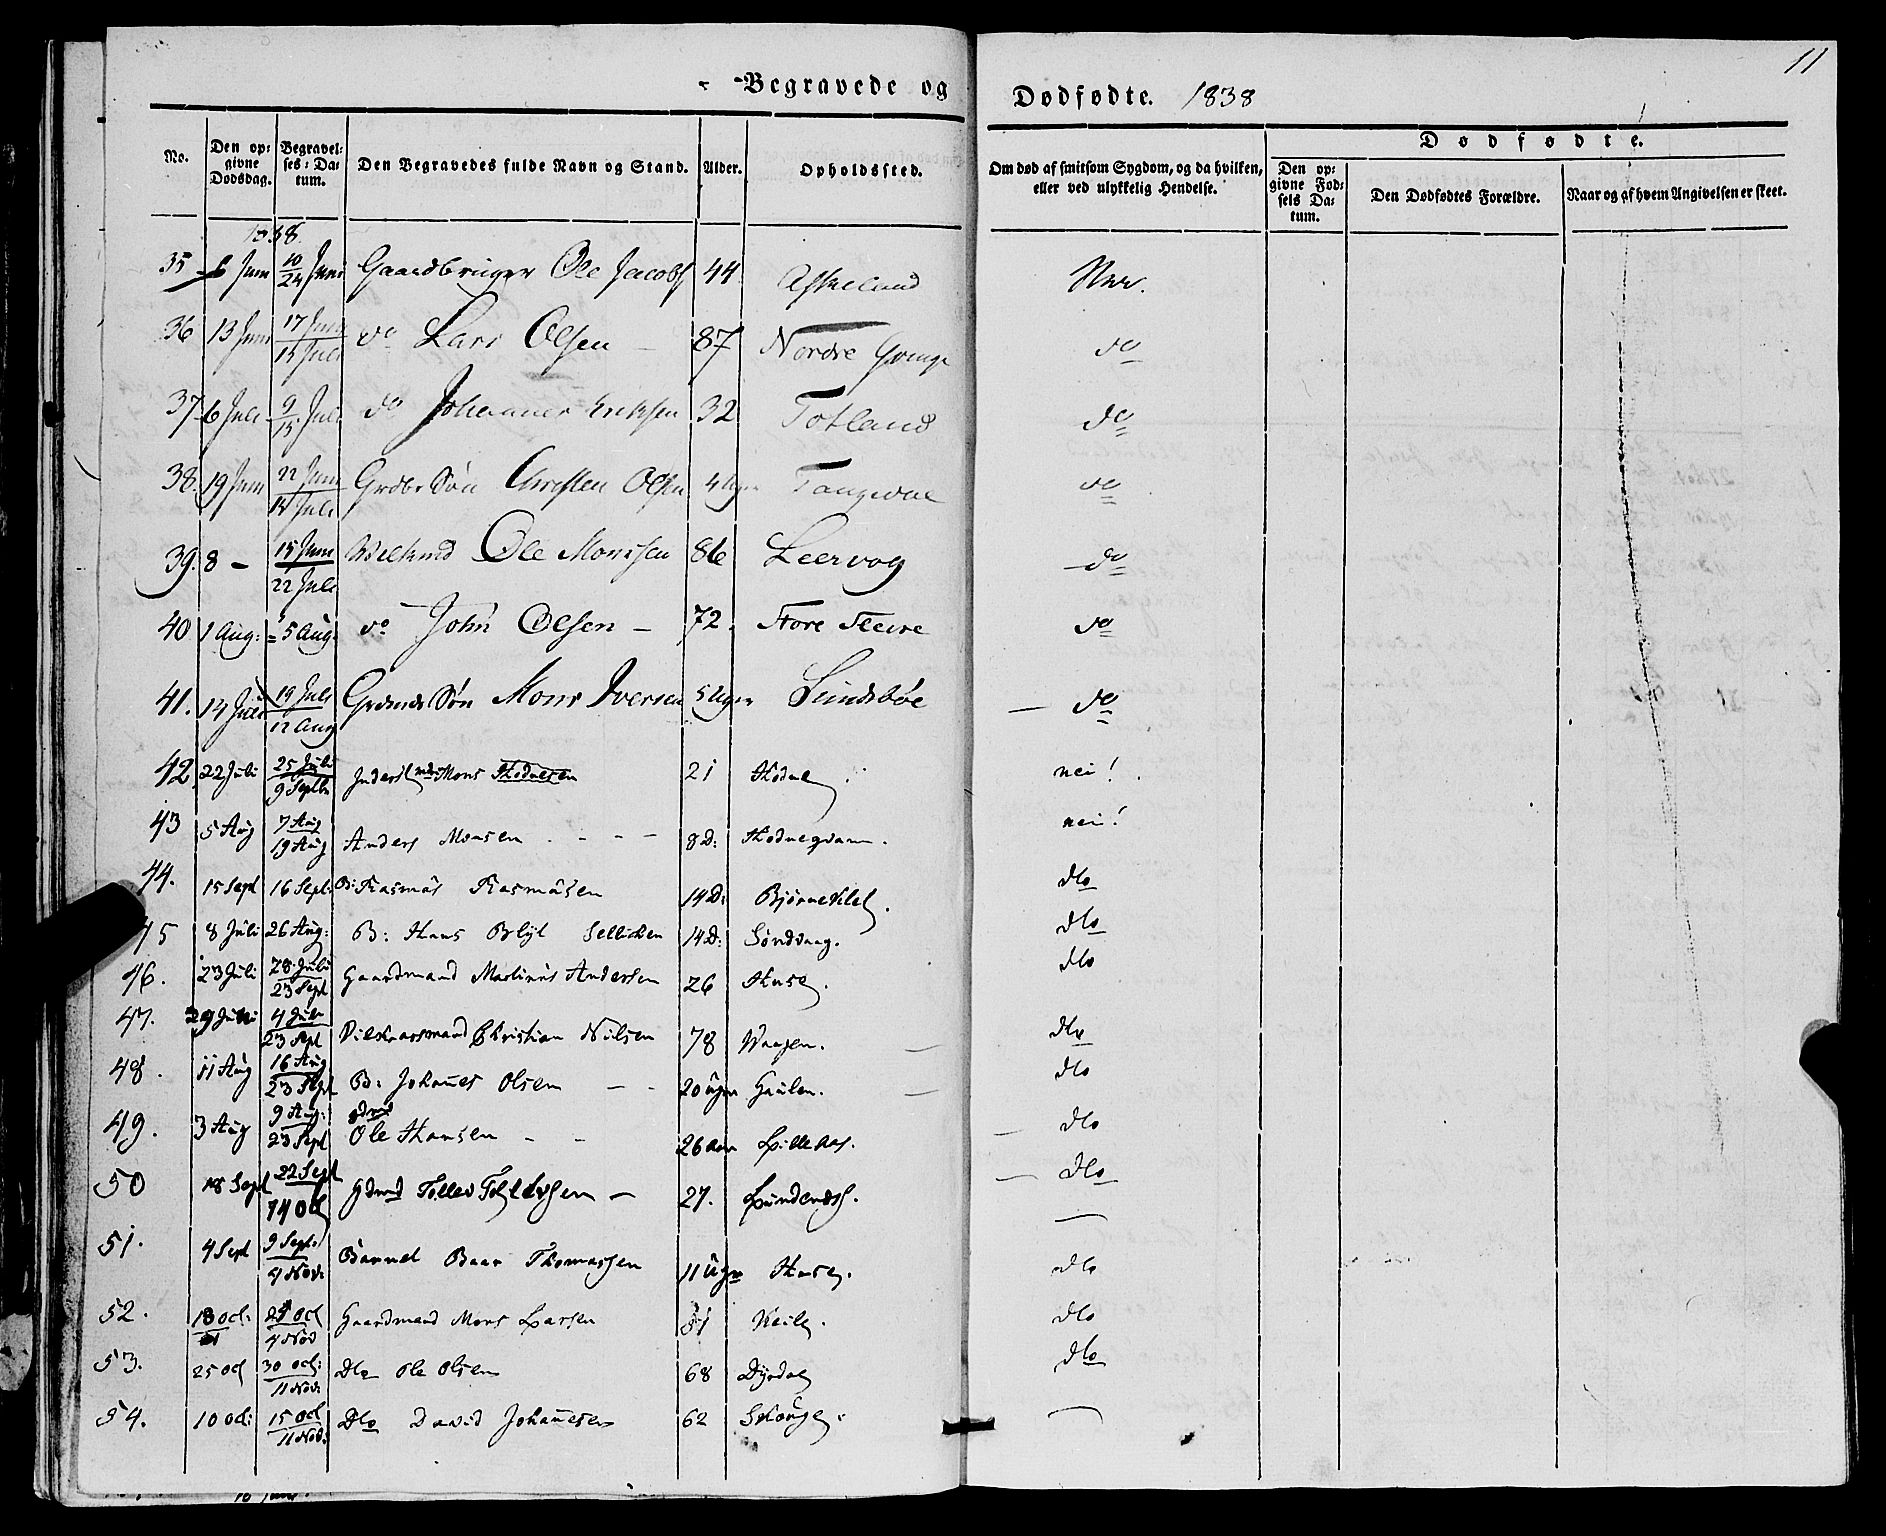 11
Begravede og Dødfødte. 1838
No. Den opgivne Dødsdag. Begravelses-Datum. Den Begravedes fulde Navn og Stand. Alder. Opholdssted. Om død af smitsom Sygdom, og da hvilken, eller ved ulykkelig Hendelse. Dødfødte. Den opgivne Fødsels Datum. Den Dødfødtes Forældre. Naar og af hvem Angivelsen er skeet.
1838.
35 6 Juni 10/24 Juni Gaardbruger Ole Jacobs 44 Askeland
36 13 Juni 17 Juni/15 Juli do Lars Olsen — 87 Nordre do
37 6 Juli 9/15 Juli do Johannes Eriksen 32 Totland do
38. 19 Juni 22 Juni/15 Juli Grdbr Søn Christen Olsen 4 Uger do
39. 8 — 15 Juni/22 Juli Ole Monssen 86 Leervog do
40 1 Aug: 5 Aug. do John Olsen — 72. Store do
41. 14 Juli 19 Juli/12 Aug Grdmds Søn Mons Iversen 5 Uger Sundsbøe do
42. 22 Juli 25 Juli/9 Septbr Mons 21 nei!
43 5 Aug 7 Aug/19 Aug Anders Monsen 8 D: nei!
44. 15 Sept 16 Sept. B: Rasmus Rasmusen 14 D: do
45 8 Juli 26 Aug: B: Hans 14 D: do
46. 23 Juli 28 Juli/23 Sept Gaardmand Martinus Andersen 26 do
47. 29 Juni 4 Juli/23 Sept Christian Nilsen 78 Waagen. do
48. 11 Aug 16 Aug/23 Sept B: Johannes Olsen — 20 Uger Gaulen. do
49. 3 Aug 9 Aug:/23 Sept Gdmd Ole Hansen 26 Aar Lilleaas. do
50 18 Sept 22 Sept/14 Oct Gdmd — 27. do
51. 4 Sept 9 Sept:/4 Nov: Barnet Baar Thomassen 11 Uger —
do
52. 18 Oct: 25 Oct/4 Nov Gaardmand Mons Larsen do
53. 25 Oct 30 Oct:/11 Nov: Do Ole Olsen 68 Dyrdal do
54. 10 Oct: 15 Oct/11 Nov: Do David Johannesen 62 Skouge. —